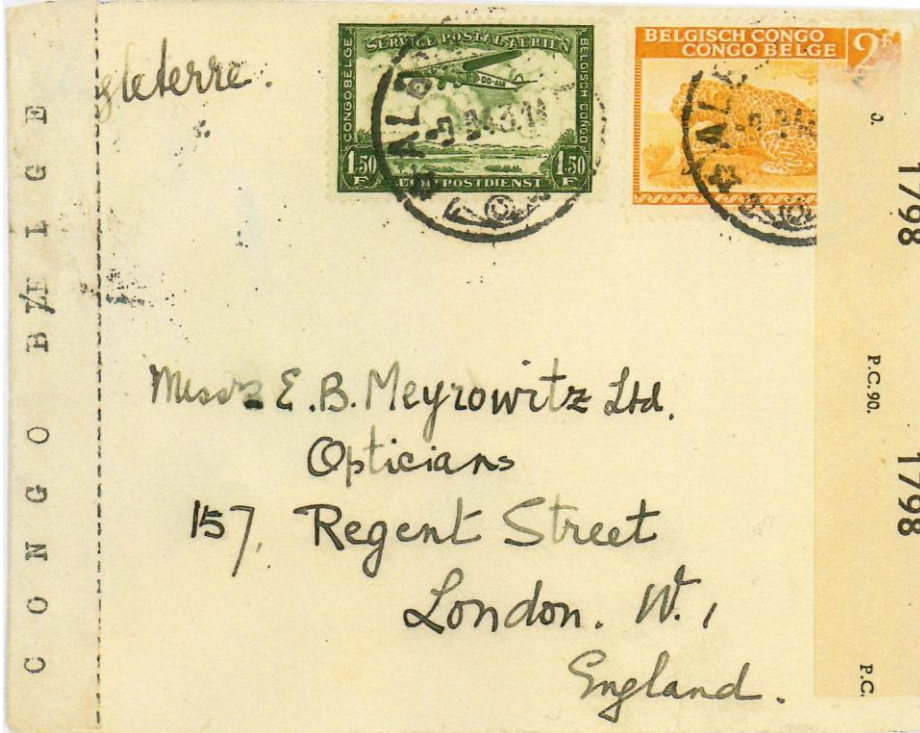 gleterre.
SERVICE POSTAL AERIEN
CONGO BELGE
BELGISCH CONGO
OO-AIR
1.50 F
1.50 F
LUCHTPOSTDIENST
BELGISCH CONGO
CONGO BELGE
2F
CONGO BELGE
Messrs E.B. Meyrowitz Ltd.
Opticians
157, Regent Street
London. W.1
England.
1798
P.C. 90.
1798
P.C.